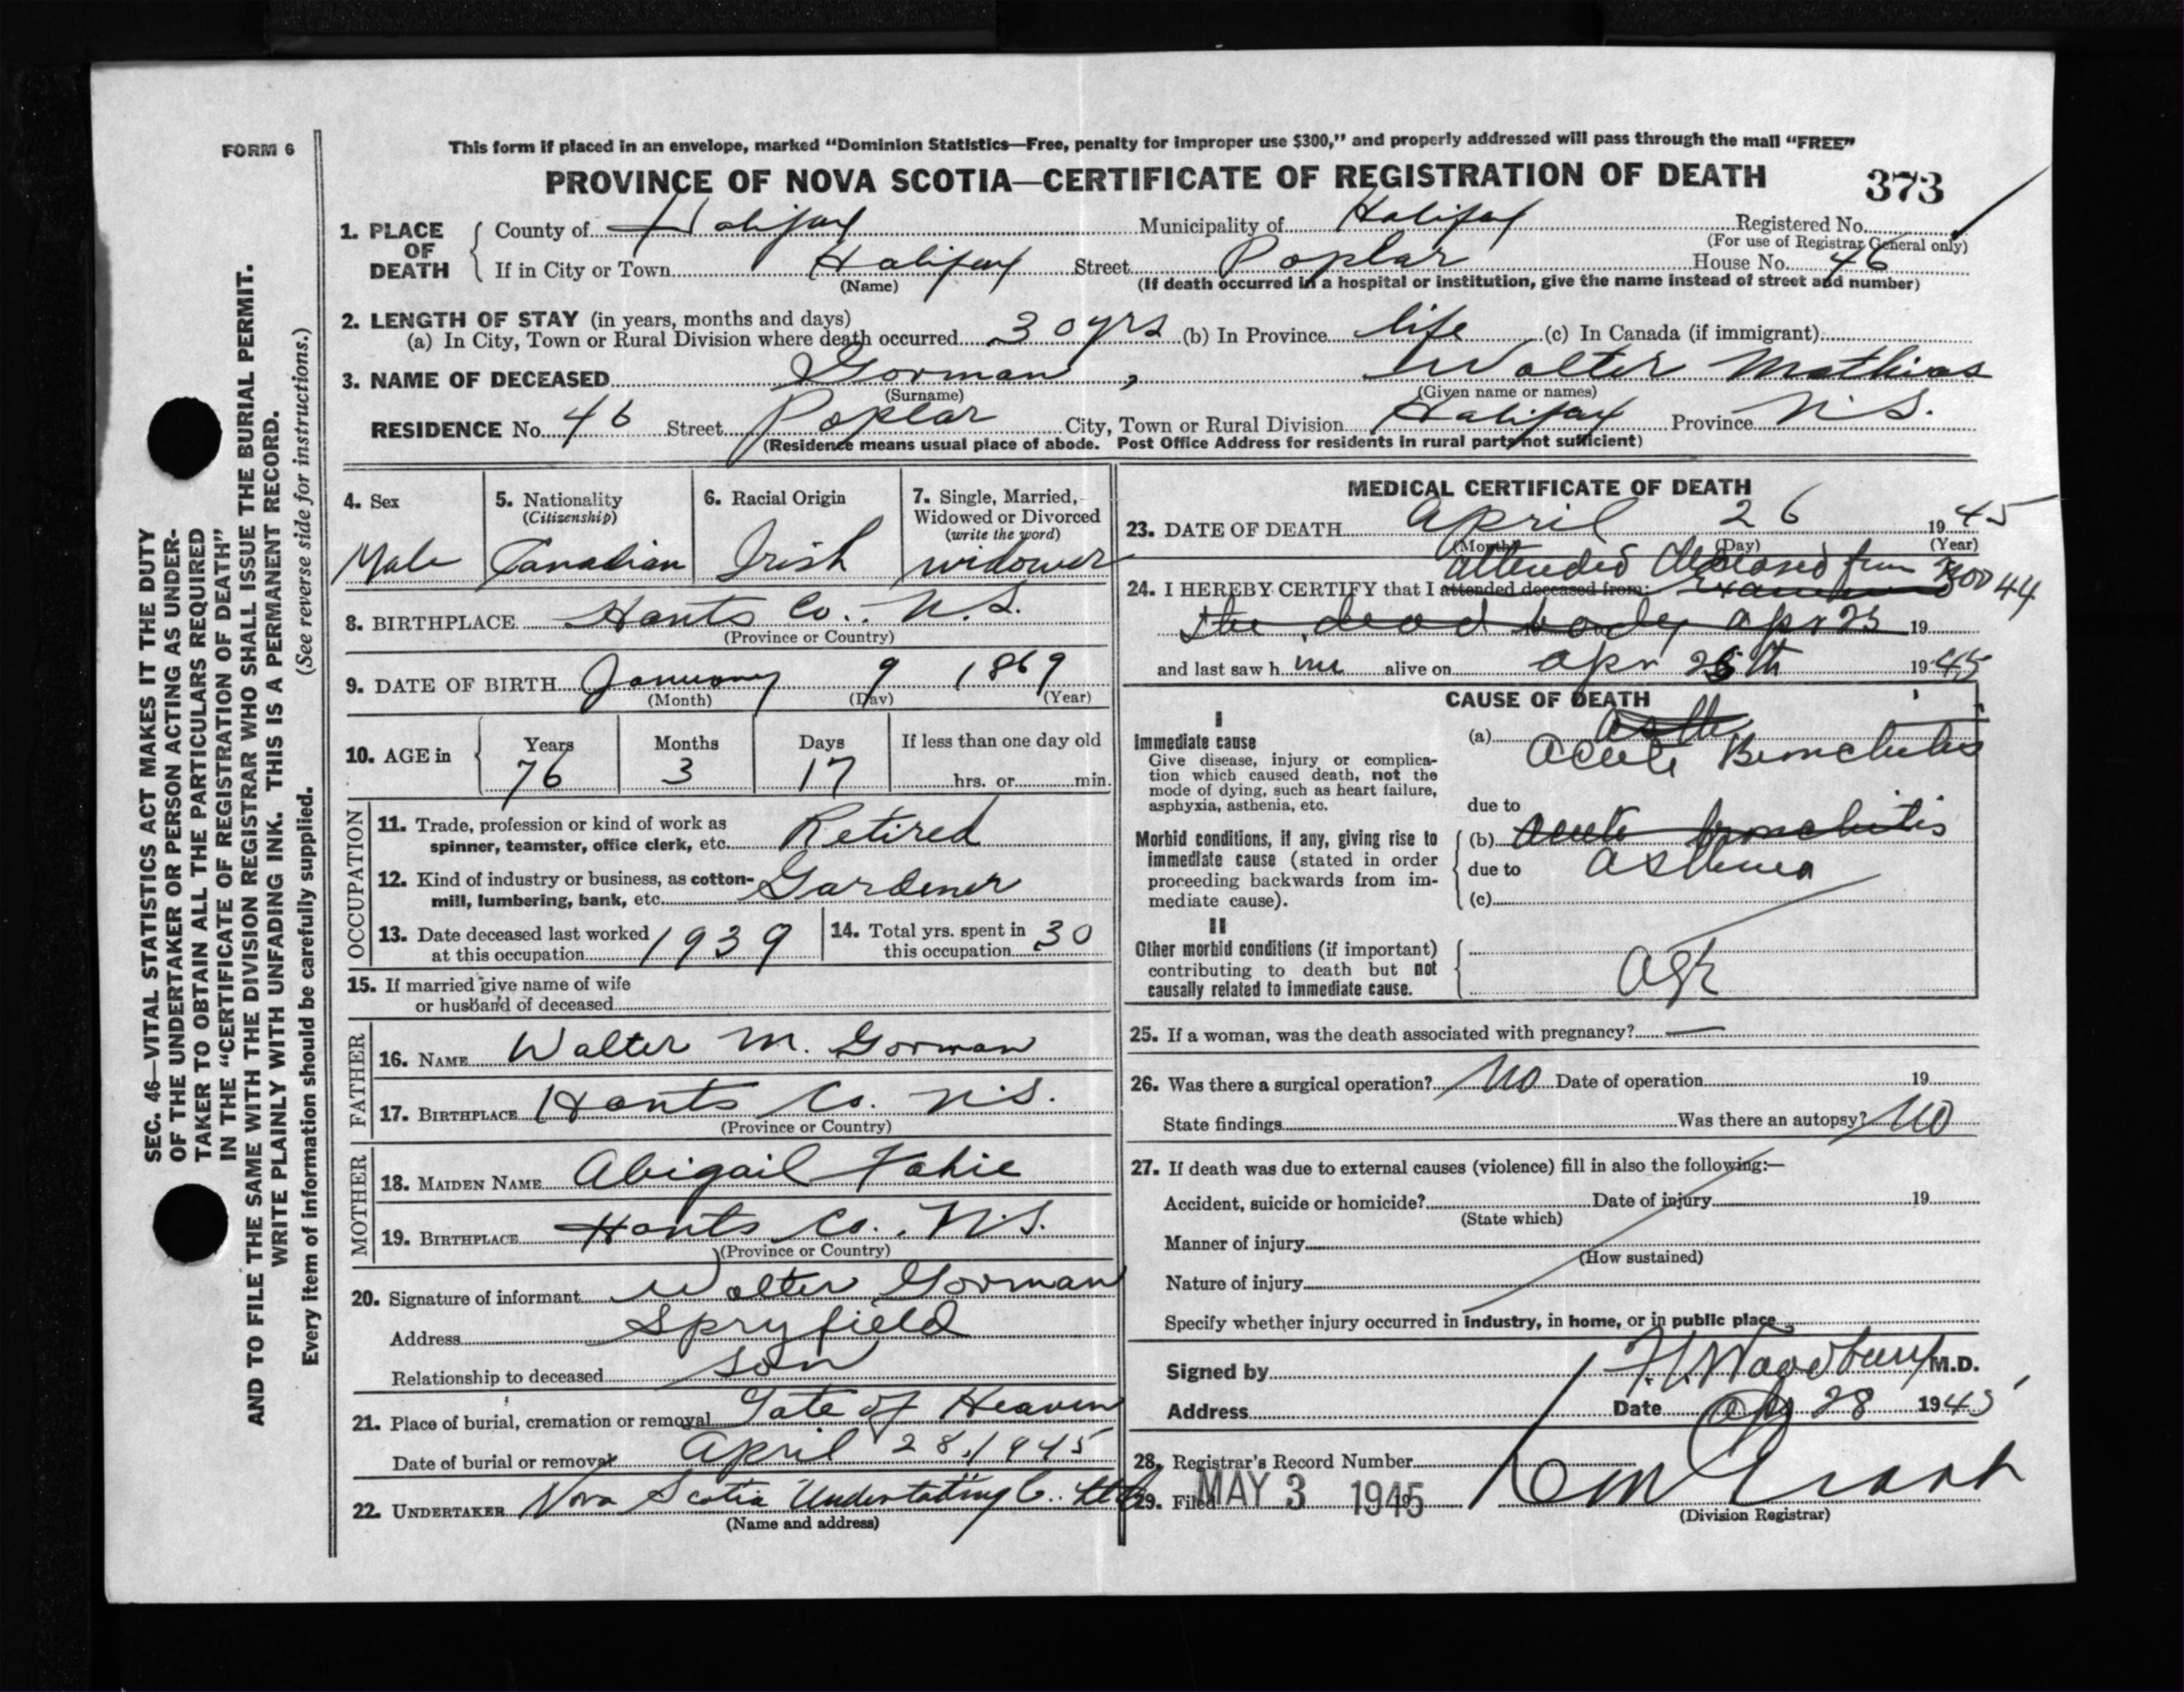 FORM 6
This form if placed in an envelope, marked “Dominion Statistics—Free, penalty for improper use $300,” and properly addressed will pass through the mail “FREE”
PROVINCE OF NOVA SCOTIA—CERTIFICATE OF REGISTRATION OF DEATH
373
1. PLACE OF DEATH
County of Halifax Municipality of Halifax Registered No.
(For use of Registrar General only)
If in City or Town Halifax Street Poplar House No. 46
(Name) (If death occurred in a hospital or institution, give the name instead of street and number)
2. LENGTH OF STAY (in years, months and days)
(a) In City, Town or Rural Division where death occurred 30 yrs (b) In Province life (c) In Canada (if immigrant)
3. NAME OF DECEASED Gorman, Walter Mathias
(Surname) (Given name or names)
RESIDENCE No. 46 Street Poplar City, Town or Rural Division Halifax Province N.S.
(Residence means usual place of abode. Post Office Address for residents in rural parts not sufficient)
4. Sex
Male
5. Nationality
(Citizenship)
Canadian
6. Racial Origin
Irish
7. Single, Married,
Widowed or Divorced
(write the word)
widower
8. BIRTHPLACE Hants Co. N.S.
(Province or Country)
9. DATE OF BIRTH January 9 1869
(Month) (Day) (Year)
10. AGE in
Years Months Days If less than one day old
76 3 17 hrs. or min.
OCCUPATION
11. Trade, profession or kind of work as
spinner, teamster, office clerk, etc. Retired
12. Kind of industry or business, as cotton-
mill, lumbering, bank, etc. Gardener
13. Date deceased last worked
at this occupation 1939
14. Total yrs. spent in
this occupation 30
15. If married give name of wife
or husband of deceased
FATHER
16. NAME Walter M. Gorman
17. BIRTHPLACE Hants Co. N.S.
(Province or Country)
MOTHER
18. MAIDEN NAME Abigail Fahie
19. BIRTHPLACE Hants Co. N.S.
(Province or Country)
20. Signature of informant Walter Gorman
Address Spryfield
Relationship to deceased son
21. Place of burial, cremation or removal Gate of Heaven
Date of burial or removal April 28, 1945
22. UNDERTAKER Nova Scotia Undertaking Co. Ltd
(Name and address)
MEDICAL CERTIFICATE OF DEATH
23. DATE OF DEATH April 26 1945
(Month) (Day) (Year)
attended deceased from Nov 44
24. I HEREBY CERTIFY that I attended deceased from: examined
the dead body apr 23 19
and last saw him alive on apr 26th 1945
CAUSE OF DEATH
I
Immediate cause
Give disease, injury or complica-
tion which caused death, not the
mode of dying, such as heart failure,
asphyxia, asthenia, etc.
(a) Acute Bronchitis
due to
Morbid conditions, if any, giving rise to
immediate cause (stated in order
proceeding backwards from im-
mediate cause).
(b) acute bronchitis
due to asthma
(c)
II
Other morbid conditions (if important)
contributing to death but not
causally related to immediate cause.
Age
25. If a woman, was the death associated with pregnancy? —
26. Was there a surgical operation? No Date of operation 19
State findings Was there an autopsy? No
27. If death was due to external causes (violence) fill in also the following:—
Accident, suicide or homicide? Date of injury 19
(State which)
Manner of injury
(How sustained)
Nature of injury
Specify whether injury occurred in industry, in home, or in public place
Signed by F. V. Woodbury M.D.
Address Date Apr 28 1945
28. Registrar's Record Number
29. Filed MAY 3 1945 19
(Division Registrar)
SEC. 46—VITAL STATISTICS ACT MAKES IT THE DUTY
OF THE UNDERTAKER OR PERSON ACTING AS UNDER-
TAKER TO OBTAIN ALL THE PARTICULARS REQUIRED
IN THE “CERTIFICATE OF REGISTRATION OF DEATH”
AND TO FILE THE SAME WITH THE DIVISION REGISTRAR WHO SHALL ISSUE THE BURIAL PERMIT.
WRITE PLAINLY WITH UNFADING INK. THIS IS A PERMANENT RECORD.
Every item of information should be carefully supplied. (See reverse side for instructions.)